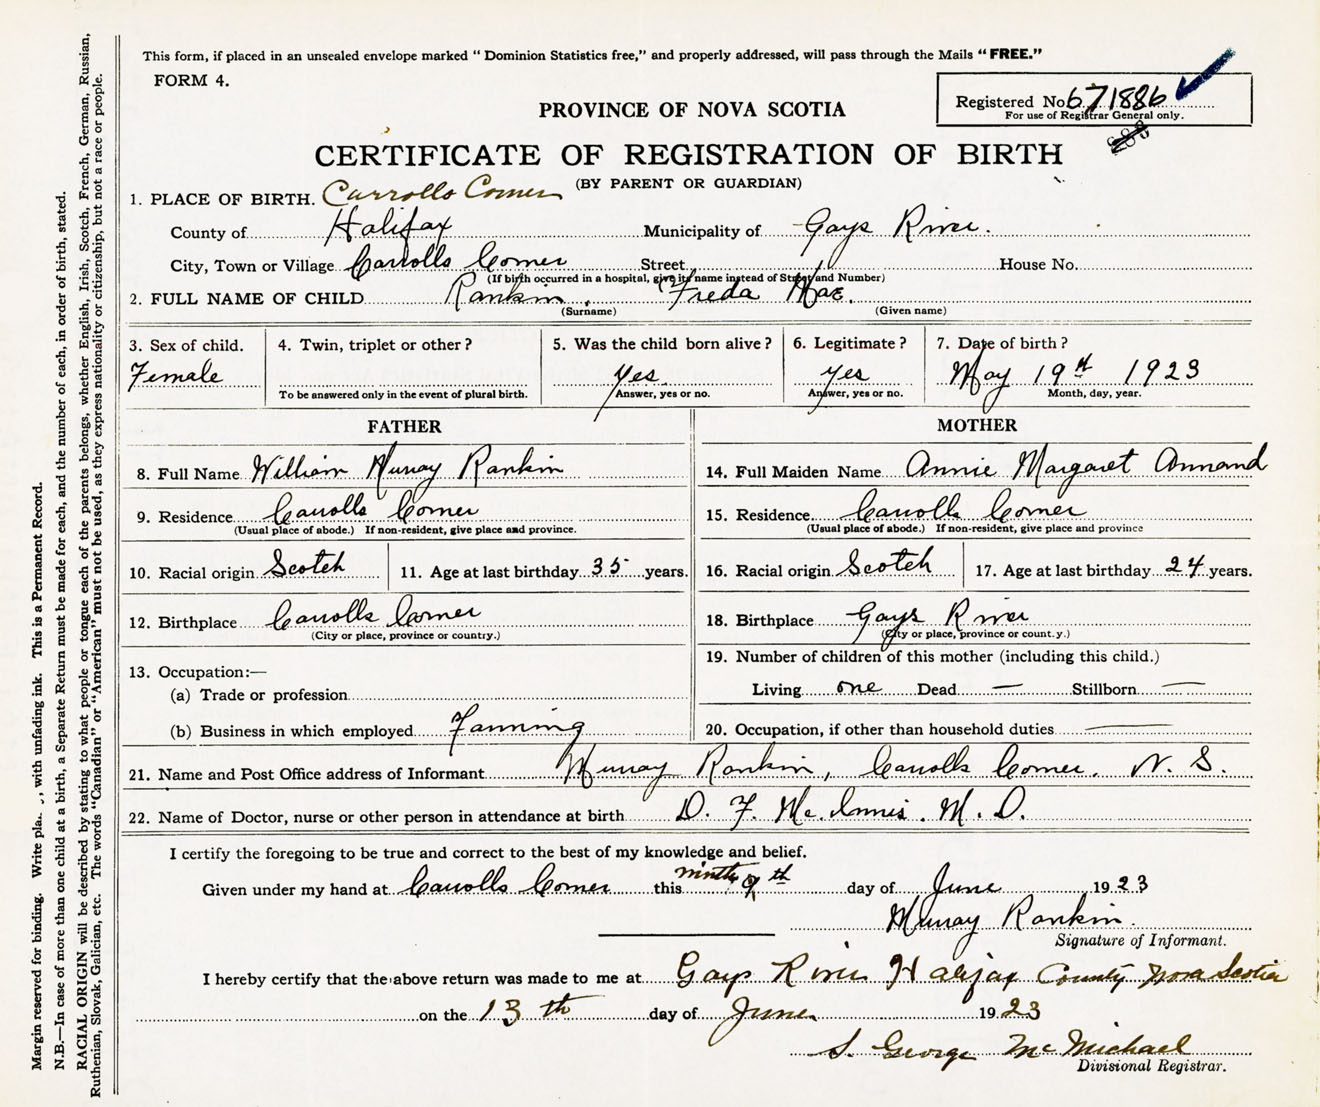 This form, if placed in an unsealed envelope marked "Dominion Statistics free," and properly addressed, will pass through the Mails "FREE."
FORM 4.
Registered No. 671886
For use of Registrar General only.
PROVINCE OF NOVA SCOTIA
CERTIFICATE OF REGISTRATION OF BIRTH
(BY PARENT OR GUARDIAN)
1. PLACE OF BIRTH. Carrolls Corner
County of Halifax Municipality of Gays River.
City, Town or Village Carrolls Corner Street House No.
(If birth occurred in a hospital, give its name instead of Street and Number)
2. FULL NAME OF CHILD Rankin, Freda Mae.
(Surname) (Given name)
3. Sex of child. 4. Twin, triplet or other? 5. Was the child born alive? 6. Legitimate? 7. Date of birth?
Female Yes Yes May 19th 1923
To be answered only in the event of plural birth. Answer, yes or no. Answer, yes or no. Month, day, year.
FATHER MOTHER
8. Full Name William Murray Rankin 14. Full Maiden Name Annie Margaret Annand
9. Residence Carrolls Corner 15. Residence Carrolls Corner
(Usual place of abode.) If non-resident, give place and province. (Usual place of abode.) If non-resident, give place and province
10. Racial origin Scotch 11. Age at last birthday 35 years. 16. Racial origin Scotch 17. Age at last birthday 24 years.
12. Birthplace Carrolls Corner 18. Birthplace Gays River
(City or place, province or country.) (City or place, province or count.y.)
13. Occupation:— 19. Number of children of this mother (including this child.)
(a) Trade or profession Living one Dead — Stillborn —
(b) Business in which employed Farming 20. Occupation, if other than household duties —
21. Name and Post Office address of Informant Murray Rankin, Carrolls Corner. N. S.
22. Name of Doctor, nurse or other person in attendance at birth D. F. McInnis. M. D.
I certify the foregoing to be true and correct to the best of my knowledge and belief.
Given under my hand at Carrolls Corner this ninth 9th day of June 1923
Murray Rankin.
Signature of Informant.
I hereby certify that the above return was made to me at Gays River Halifax County Nova Scotia
on the 13th day of June 1923
S. George McMichael
Divisional Registrar.
Margin reserved for binding. Write with unfading ink. This is a Permanent Record.
N.B.—In case of more than one child at a birth, a Separate Return must be made for each, and the number of each, in order of birth, stated.
RACIAL ORIGIN will be described by stating to what people or tongue each of the parents belongs, whether English, Irish, Scotch, French, German, Russian,
Ruthenian, Slovak, Galician, etc. The words "Canadian" or "American" must not be used, as they express nationality or citizenship, but not a race or people.